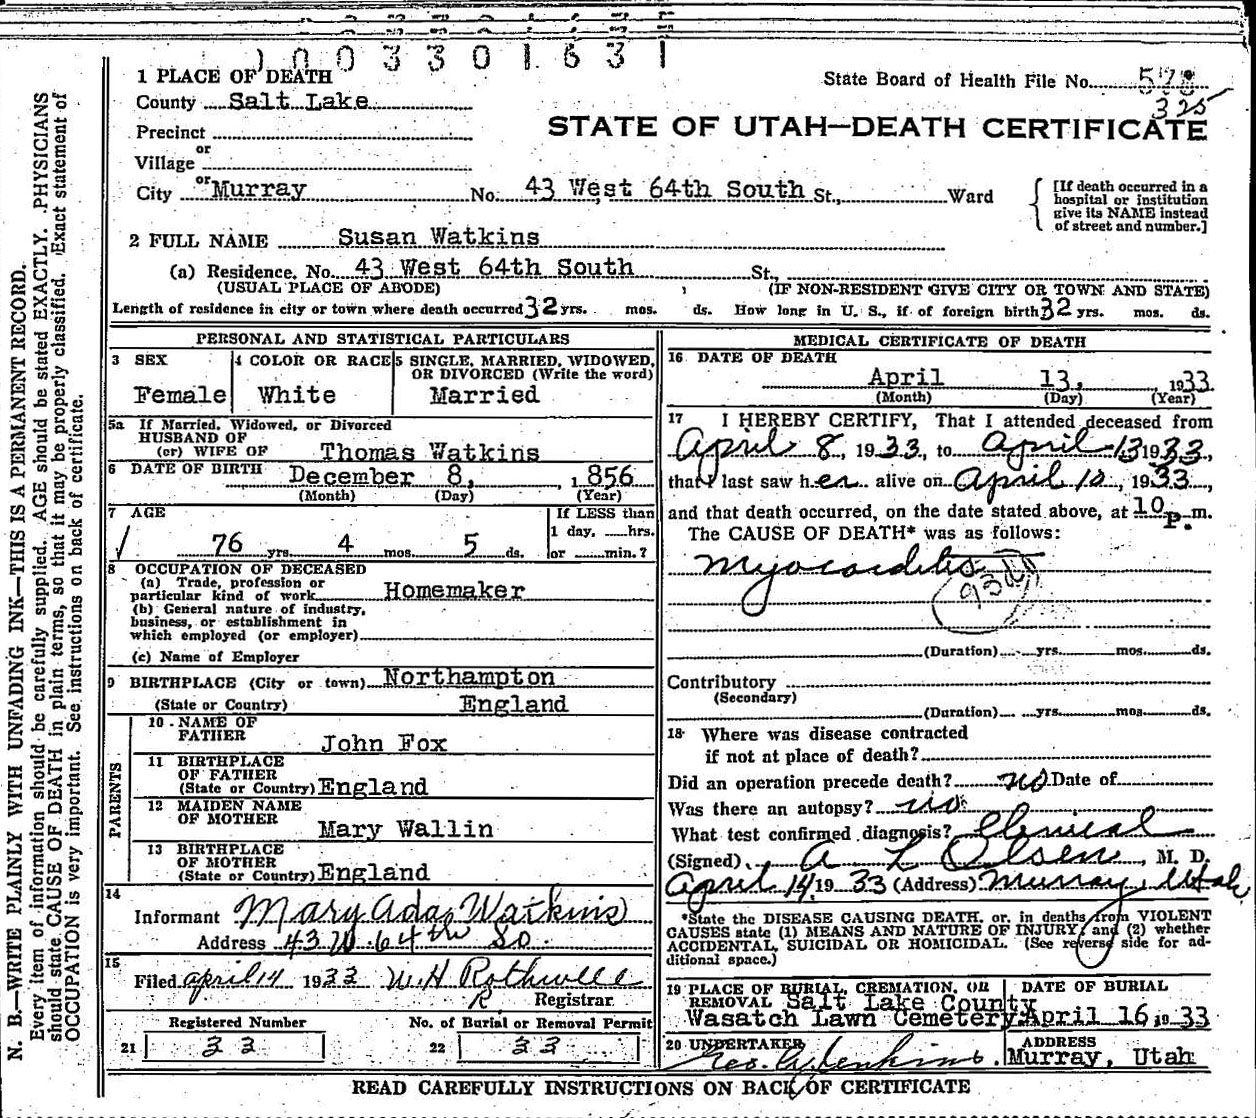 1003301631
1 PLACE OF DEATH
State Board of Health File No. 578
325
County Salt Lake
STATE OF UTAH—DEATH CERTIFICATE
Precinct
or
Village
or
City Murray No. 43 West 64th South St., Ward
[If death occurred in a hospital or institution give its NAME instead of street and number.]
2 FULL NAME Susan Watkins
(a) Residence. No. 43 West 64th South St.,
(USUAL PLACE OF ABODE) (IF NON-RESIDENT GIVE CITY OR TOWN AND STATE)
Length of residence in city or town where death occurred 32 yrs. mos. ds. How long in U. S., if of foreign birth 32 yrs. mos. ds.
PERSONAL AND STATISTICAL PARTICULARS
3 SEX
Female
4 COLOR OR RACE
White
5 SINGLE, MARRIED, WIDOWED, OR DIVORCED (Write the word)
Married
5a If Married, Widowed, or Divorced
HUSBAND OF
(or) WIFE OF Thomas Watkins
6 DATE OF BIRTH December 8, 1856
(Month) (Day) (Year)
7 AGE
76 yrs. 4 mos. 5 ds.
If LESS than
1 day, hrs.
or min.?
8 OCCUPATION OF DECEASED
(a) Trade, profession or
particular kind of work Homemaker
(b) General nature of industry,
business, or establishment in
which employed (or employer)
(c) Name of Employer
9 BIRTHPLACE (City or town) Northampton
(State or Country) England
PARENTS
10 NAME OF
FATHER John Fox
11 BIRTHPLACE
OF FATHER
(State or Country) England
12 MAIDEN NAME
OF MOTHER Mary Wallin
13 BIRTHPLACE
OF MOTHER
(State or Country) England
14
Informant Mary Ada Watkins
Address 43 W. 64th So.
15
Filed April 14 1933 W H Rothwell
R Registrar
Registered Number No. of Burial or Removal Permit
21 33 22 33
MEDICAL CERTIFICATE OF DEATH
16 DATE OF DEATH
April 13, 1933
(Month) (Day) (Year)
17 I HEREBY CERTIFY, That I attended deceased from
April 8, 1933, to April 13 1933,
that I last saw her alive on April 10, 1933,
and that death occurred, on the date stated above, at 10 P. m.
The CAUSE OF DEATH* was as follows:
Myocarditis
(Duration) yrs. mos. ds.
Contributory
(Secondary)
(Duration) yrs. mos. ds.
18 Where was disease contracted
if not at place of death?
Did an operation precede death? no Date of
Was there an autopsy? no
What test confirmed diagnosis? Clinical
(Signed) A L Olsen, M. D.
April 14 1933 (Address) Murray, Utah
*State the DISEASE CAUSING DEATH, or, in deaths from VIOLENT
CAUSES state (1) MEANS AND NATURE OF INJURY; and (2) whether
ACCIDENTAL, SUICIDAL OR HOMICIDAL. (See reverse side for ad-
ditional space.)
19 PLACE OF BURIAL, CREMATION, OR
REMOVAL Salt Lake County
Wasatch Lawn Cemetery
DATE OF BURIAL
April 16, 1933
20 UNDERTAKER
Geo. A. Jenkins
ADDRESS
Murray, Utah
READ CAREFULLY INSTRUCTIONS ON BACK OF CERTIFICATE
N. B.—WRITE PLAINLY WITH UNFADING INK—THIS IS A PERMANENT RECORD.
Every item of information should be carefully supplied. AGE should be stated EXACTLY. PHYSICIANS
should state CAUSE OF DEATH in plain terms, so that it may be properly classified. Exact statement of
OCCUPATION is very important. See instructions on back of certificate.